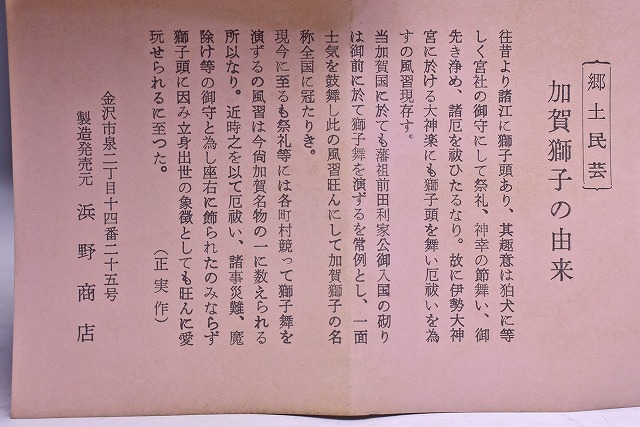 郷土民芸
加賀獅子の由来
往昔より諸江に獅子頭あり、其趣意は狛犬に等
しく宮社の御守にして祭礼、神幸の節舞い、御
先き浄め、諸厄を祓ひたるなり。故に伊勢大神
宮に於ける大神楽にも獅子頭を舞い厄祓いを為
すの風習現存す。
当加賀国に於ても藩祖前田利家公御入国の砌り
は御前に於て獅子舞を演ずるを常例とし、一面
士気を鼓舞し此の風習旺んにして加賀獅子の名
称全国に冠たりき。
現今に至るも祭礼等には各町村競って獅子舞を
演ずるの風習は今尚加賀名物の一に数えられる
所以なり。近時之を以て厄祓い、諸事災難、魔
除け等の御守と為し座右に飾られたのみならず
獅子頭に因み立身出世の象徴としても旺んに愛
玩せられるに至つた。
(正実作)
金沢市泉二丁目十四番二十五号
製造発売元 浜野商店